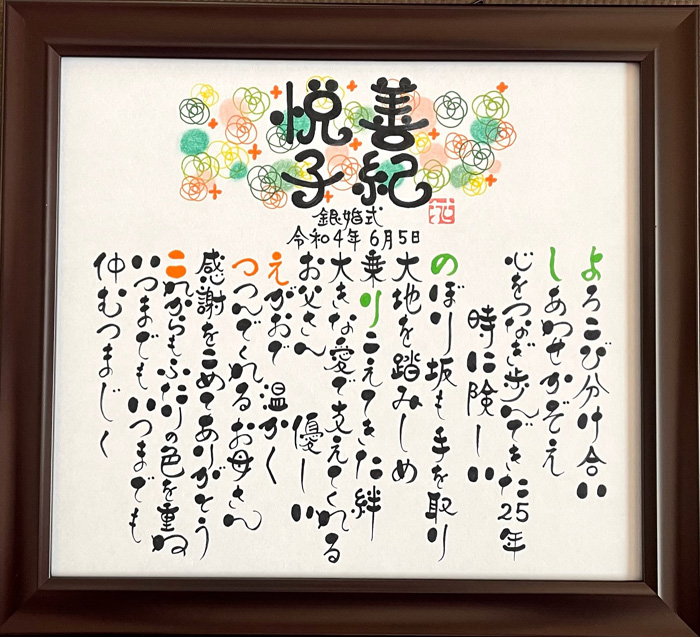 善紀
悦子
銀婚式
令和4年6月5日
よろこび分け合い
しあわせかぞえ
心をつなぎ歩んできた25年
時に険しい
のぼり坂も手を取り
大地を踏みしめ
乗りこえてきた絆
大きな愛で支えてくれる
お父さん
優しい
えがおで温かく
つつんでくれるお母さん
感謝をこめてありがとう
これからもふたりの色を重ね
いつまでもいつまでも
仲むつまじく